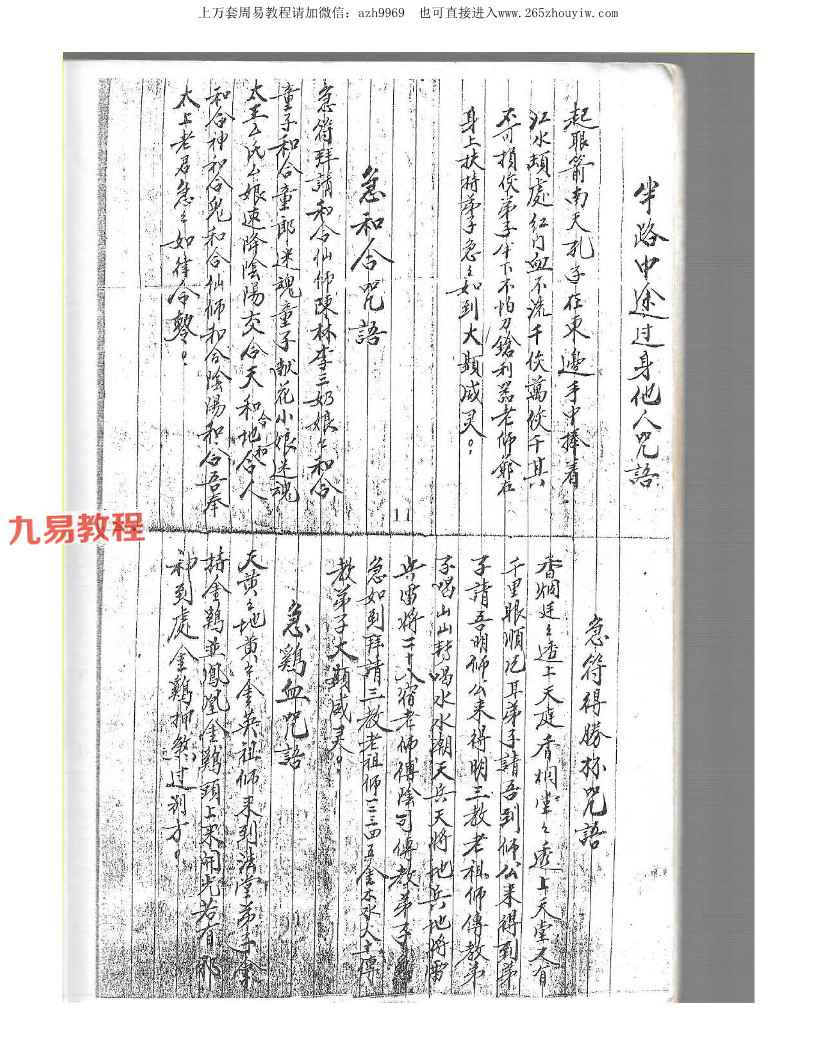 上万套周易教程请加微信：azh9969 也可直接进入www.265zhouyiw.com
半路中途过身他人咒語
起眼箭南天孔子在東邊手中捧着
江水頭處红门血不流千佼萬佼千其八
不可損佼弟子坐下不怕刀鎗利器老师爺在
身上扶持弟子急々如到大顯威灵。
急和合咒語
急符拜請和合仙师陳林李三奶娘々和合
童子和合童郎迷魂童子献花小娘迷魂
太王五氏公娘速降陰陽交合天和地合人
合和
和合神和合鬼和合仙师和合陰陽和合吾奉
太上老君急々如律令
11
九易教程
急符得勝杯咒語
香烟廷々透上天庭香烟堂々透上天堂又有
千里眼順风耳弟子請吾到师公来得到弟
子請吾明师公来得明三教老祖师傳教弟
子喝山山转喝水水潮天兵天將地兵地將雷
兵雷將二十八宿老师傅陰司傳教弟子
急如到拜請三教老祖师一二三四五金木水火土傳
教弟子大顯威灵。
急鷄血咒語
天黄々地黄々金英祖师来到法堂弟子拿
持金鷄並鳳凰金鷄頭上来開光若有邪
神到處金鷄押煞过别方。